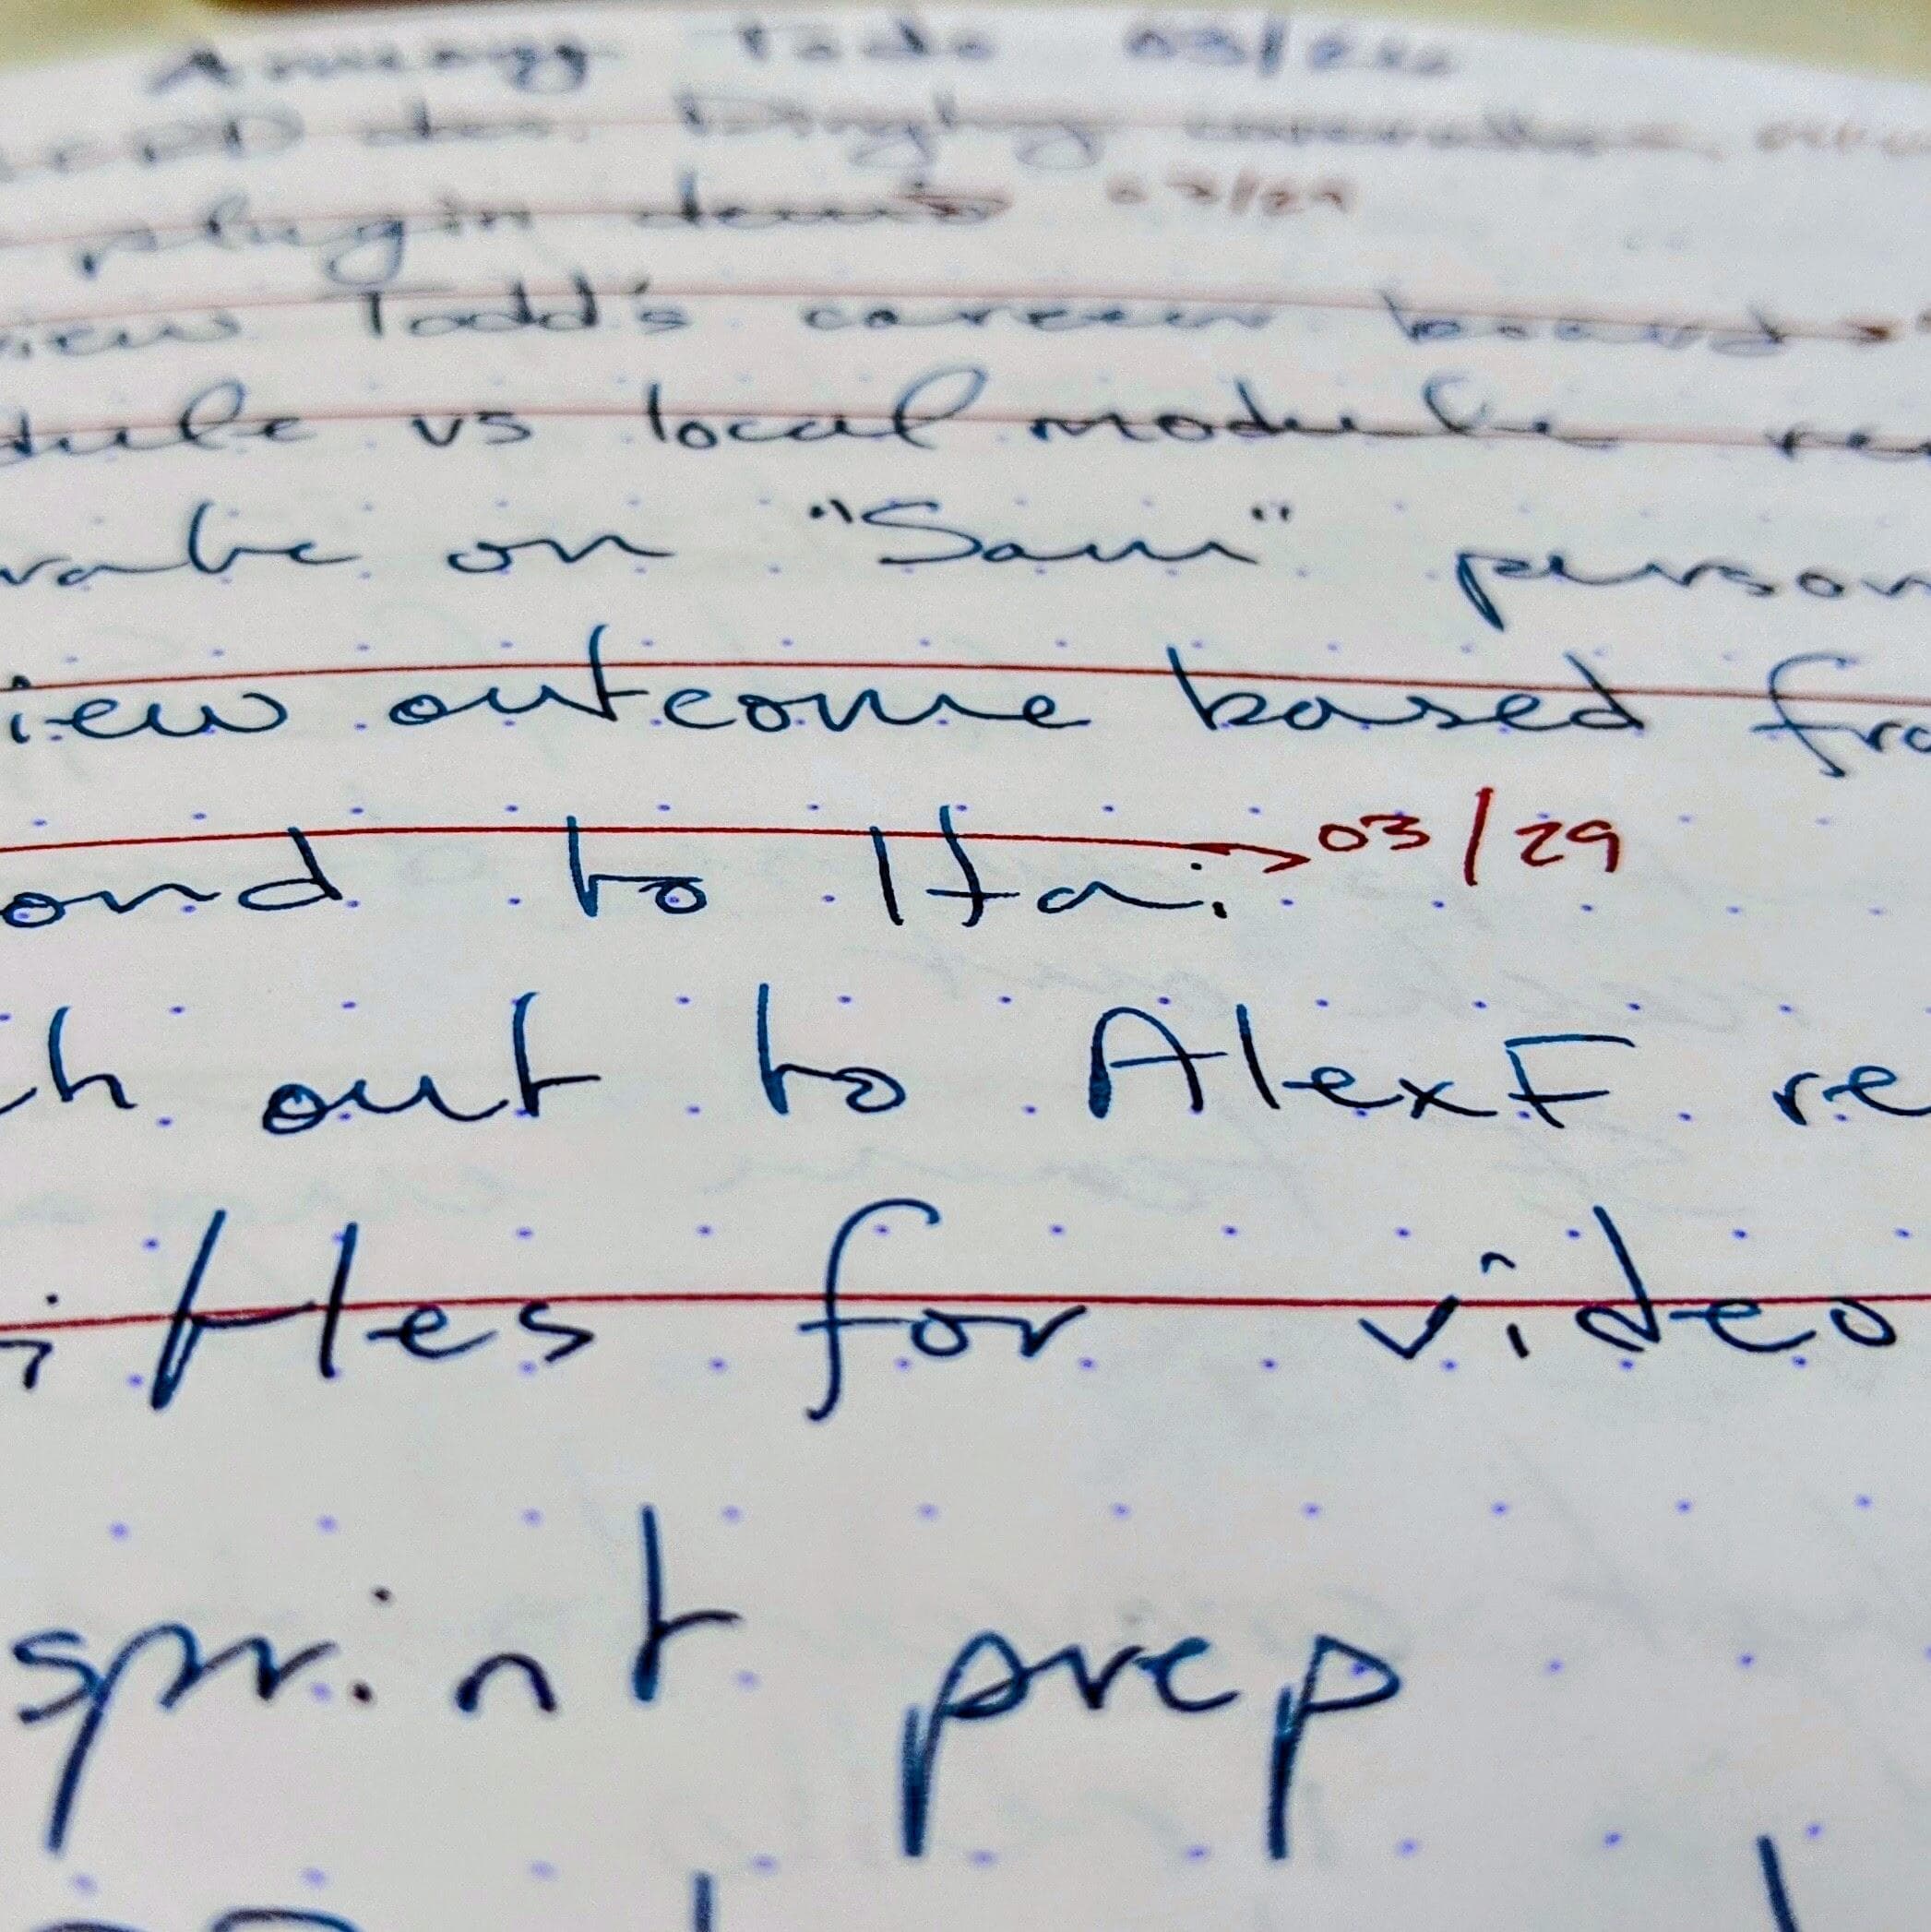 Todo
plugin demo 03/29
iew Todd's career board
dule vs local module re
rate on "Sam" person
iew outcome based fra
ond to Itai 03/29
ch out to AlexF re
itles for video
sprint prep